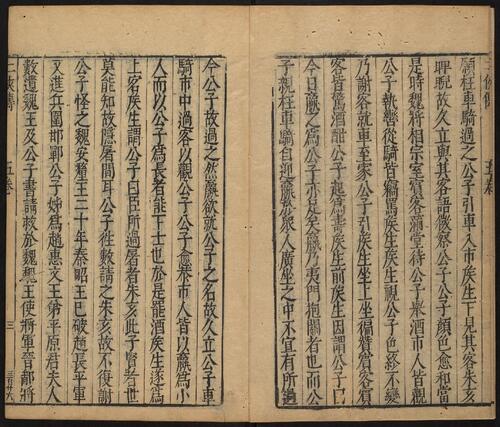 願枉車騎過之公子引車入市矦生下見其客朱亥
睥睨故久立與其客語微察公子公子顏色愈和當
是時魏將相宗室賓客滿堂待公子舉酒市人皆觀
公子執轡從騎皆竊罵矦生矦生視公子色終不變
乃謝客就車至家公子引矦生坐上坐徧贊賓客賓
客皆驚酒酣公子起爲壽矦生前矦生因謂公子曰
今日嬴之爲公子亦足矣嬴乃夷門抱關者也而公
子親枉車騎自迎嬴於衆人廣坐之中不宜有所過
今公子故過之然嬴欲就公子之名故久立公子車
騎市中過客以觀公子公子愈恭市人皆以嬴爲小
人而以公子爲長者能下士也於是罷酒矦生遂爲
上客矦生謂公子曰臣所過屠者朱亥此子賢者世
莫能知故隱屠間耳公子往數請之朱亥故不復謝
公子怪之魏安釐王二十年秦昭王已破趙長平軍
又進兵圍邯鄲公子姊爲趙惠文王弟平原君夫人
數遺魏王及公子書請救於魏魏王使將軍晉鄙將
五卷 三